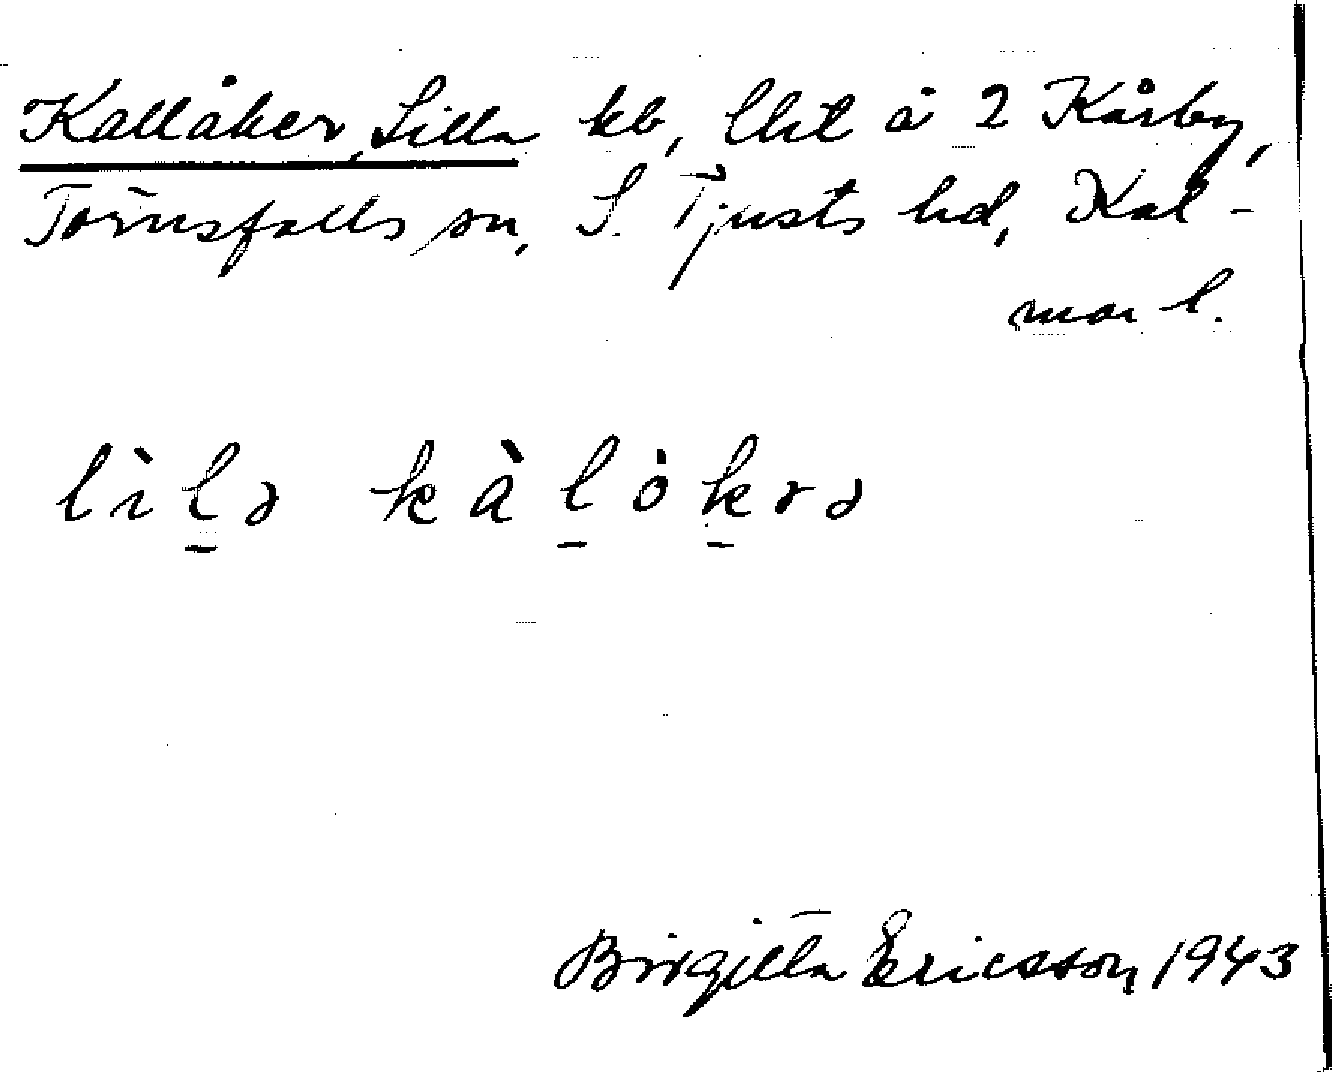 Kallåker, Lilla kb, lht å 2 Kårby,
Törnsfalls sn, S. Tjusts hd, Kal-
mar l.
lìlə kàlȯkrə
Birgitta Ericsson 1943